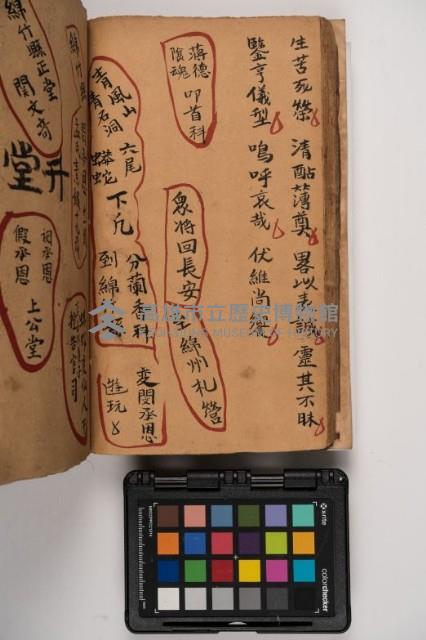 生苦死榮 清酤薄奠 畧以表誠 靈其不昧
鑒亨儀型 嗚呼哀哉 伏維尚饗
薄德
陰魂
叩首科
衆將回長安
綿州札營
青風山
青石洞
六尾
蟒蛇
下凡
分蘭香科
到綿
変閔承恩
遊玩
綿竹縣正堂
閔文奇
升堂
閔承恩
假承恩
上公堂
高雄市立歷史博物館
KAOHSIUNG MUSEUM OF HISTORY
x-rite
colorchecker